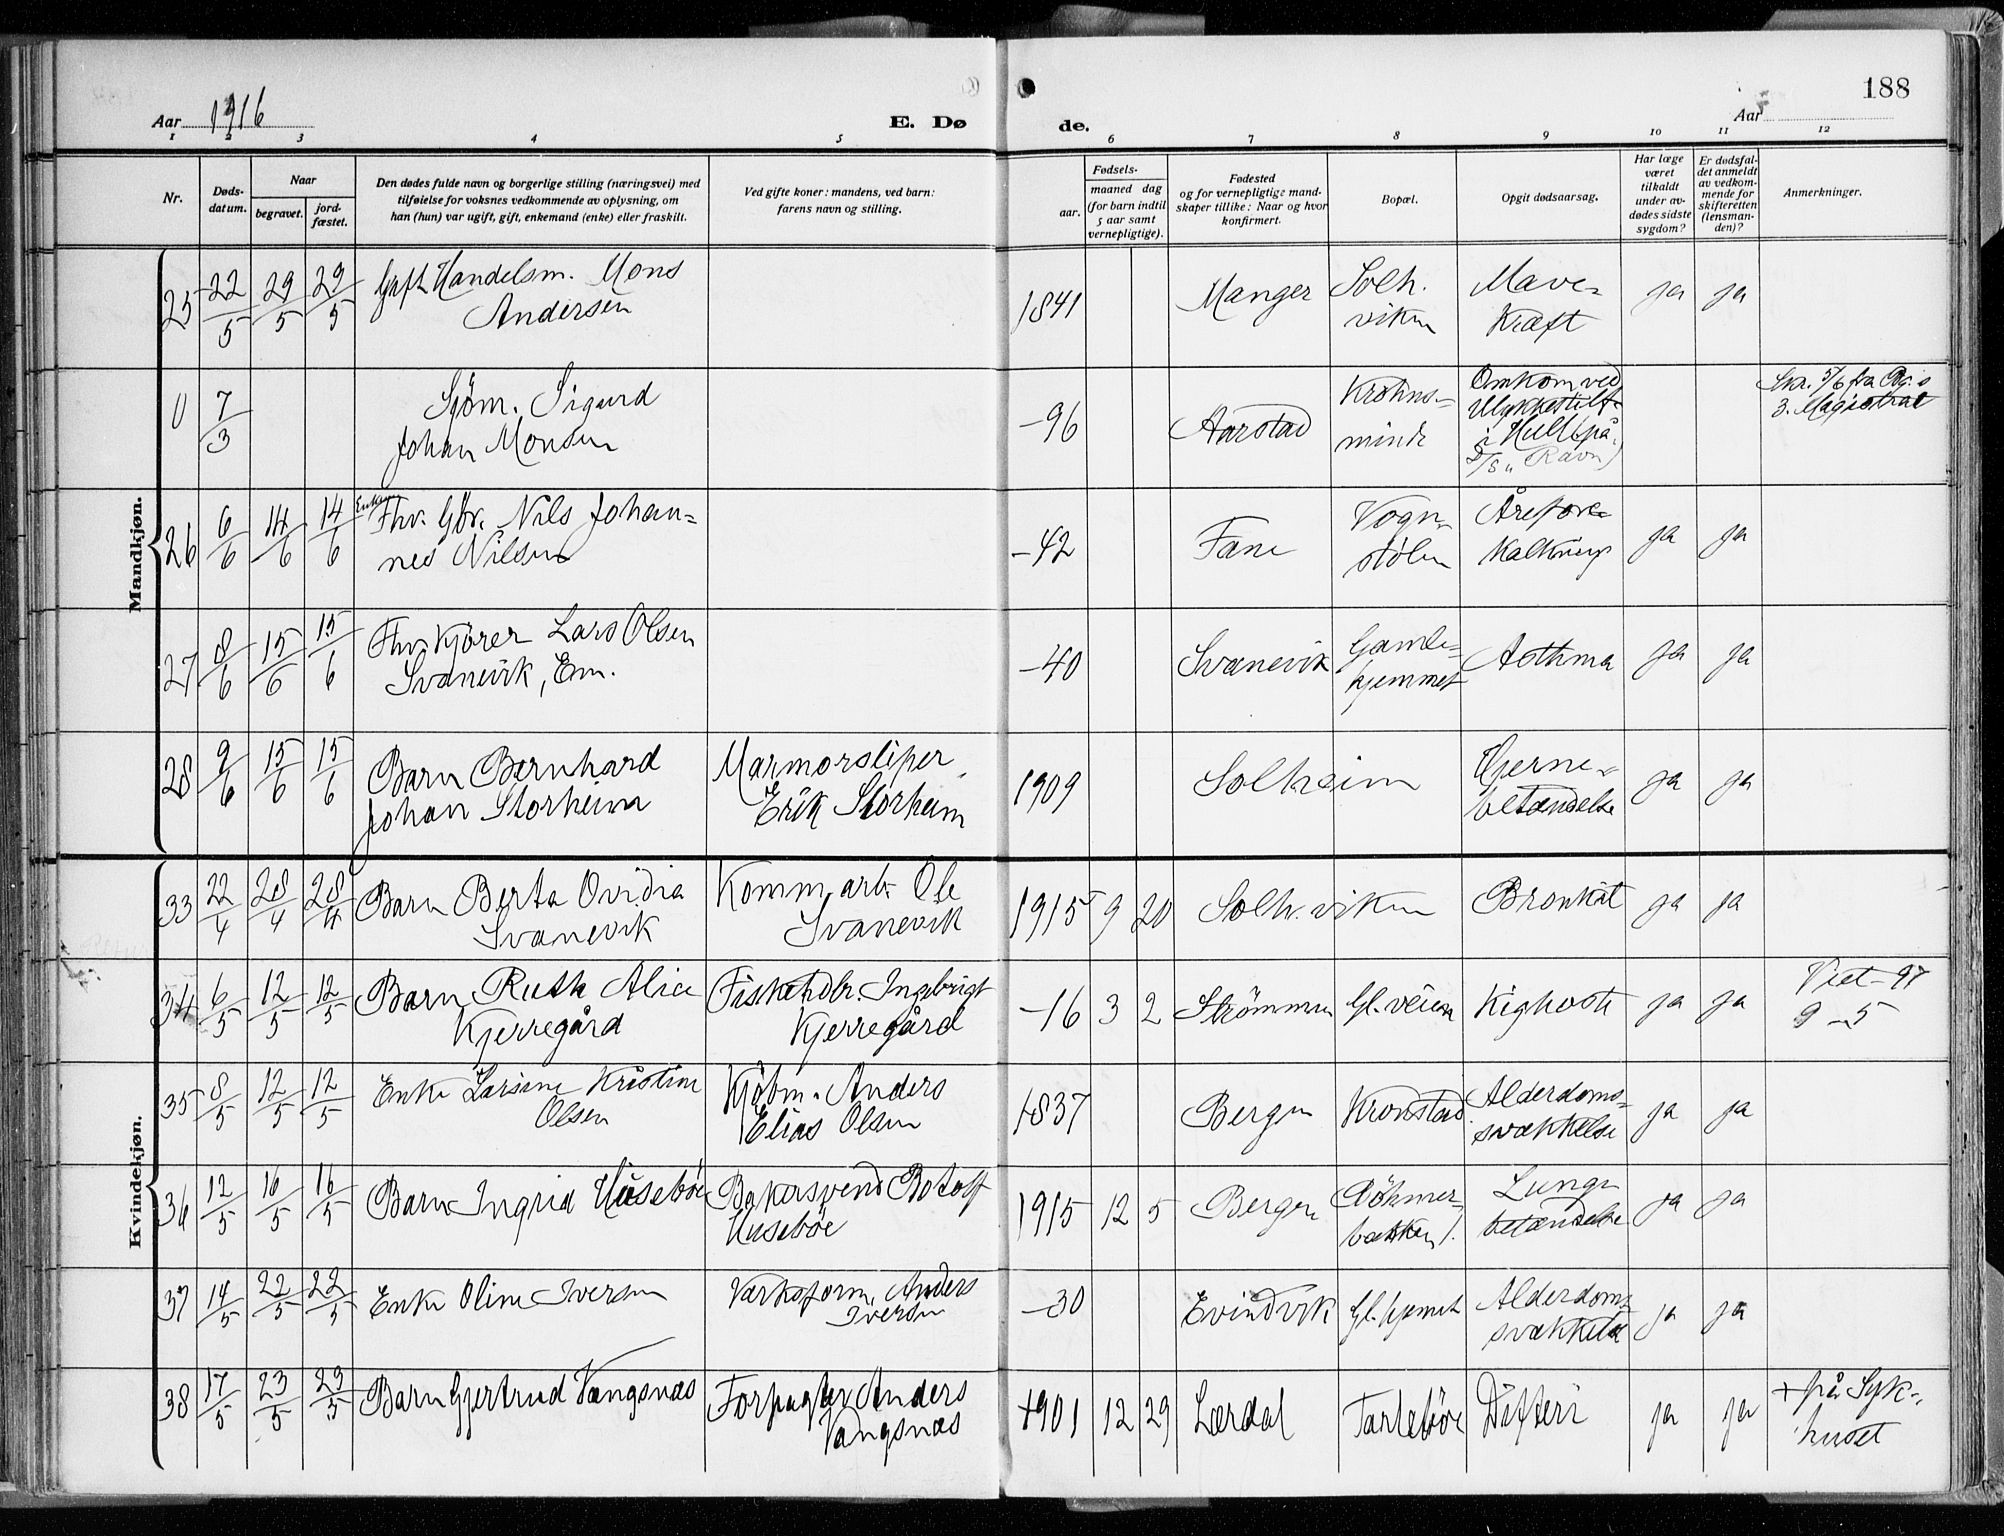 188
Aar 1916
E. Dø de.
Aar
1 2 3 4 5 6 7 8 9 10 11 12
Nr.
Døds-
datum.
Naar
begravet.
jord-
fæstet.
Den dødes fulde navn og borgerlige stilling (næringsvei) med
tilføielse for voksnes vedkommende av oplysning, om
han (hun) var ugift, gift, enkemand (enke) eller fraskilt.
Ved gifte koner: mandens, ved barn:
farens navn og stilling.
Fødsels-
aar.
maaned dag
(for barn indtil
5 aar samt
vernepligtige).
Fødested
og for vernepligtige mand-
skaper tillike: Naar og hvor
konfirmert.
Bopæl.
Opgit dødsaarsag.
Har læge
været
tilkaldt
under av-
dødes sidste
sygdom?
Er dødsfal-
det anmeldt
av vedkom-
mende for
skifteretten
(lensman-
den)?
Anmerkninger.
Mandkjøn.
25 22/5 29/5 29/5 Gift Handelsm. Mons
Andersen
1841 Manger Solh.
viken
Mave-
kræft
ja ja
0 7/3 Sjöm. Sigurd
Johan Monsen
-96 Aarstad Krohns-
minde
Omkom ved
Ulykkestilf.
i Hull (på
D/S „Ravn)
Skr. 5/6 fra
3. Magistrat
26 6/6 14/6 14/6 Enkem. Fhv. Gbr. Nils Johan-
nes Nilsen
-42 Fane Vogn-
stölen
Årefor-
kalkning
ja ja
27 8/6 15/6 15/6 Fhv. Kjörer Lars Olsen
Svanevik, Em.
-40 Svanevik Gamle-
hjemmet
Asthma ja ja
28 9/6 15/6 15/6 Barn Bernhard
Johan Storheim
Marmorsliper
Erik Storheim
1909 Solheim Hjerne-
betændelse
ja ja
Kvindekjøn.
33 22/4 28/4 28/4 Barn Berta Ovidia
Svanevik
Komm. arb. Ole
Svanevik
1915 9 20 Solh. viken Bronkit ja ja
34 6/5 12/5 12/5 Barn Ruth Alice
Kjerregård
Fiskehdlr. Ingebrigt
Kjerregård
-16 3 2 Strömmen Gl. veien Kighoste ja ja
9 - 5
35 8/5 12/5 12/5 Enke Larsine Kristine
Olsen
Kjöbm. Anders
Elias Olsen
1837 Bergen Kronstad Alderdoms-
svækkelse
ja ja
36 12/5 16/5 16/5 Barn Ingrid Husebøe
Bakersvend Botolf
Husebøe
1915 12 5 Bergen Böhmer-
bakken 1.
Lunge
betændelse
ja ja
37 14/5 22/5 22/5 Enke Oline Iversen
Verksform. Anders
Iversen
-30 Evindvik Gl. hjemet Alderdoms
svækkelse
ja ja
38 17/5 23/5 23/5 Barn Gjertrud Vangsnæs
Forpagter Anders
Vangsnæs
1901 12 29 Lærdal Tarlebøe Difteri ja ja
+ på Syk-
huset